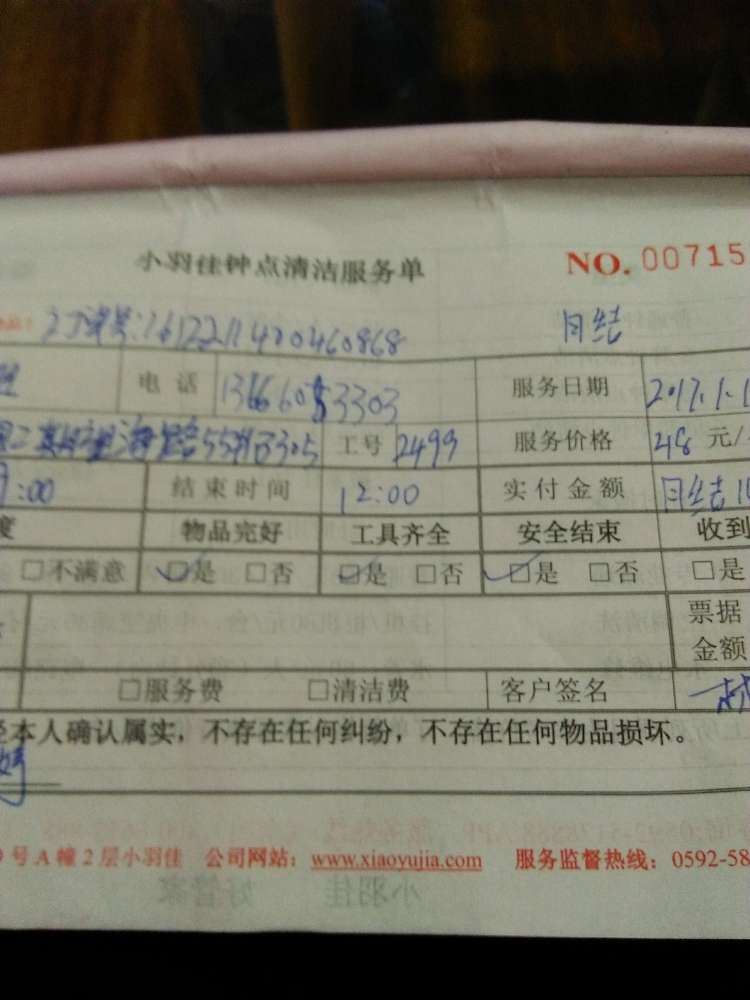 小羽佳钟点清洁服务单 NO. 00715
订单号:1612211420460868 月结
电话 服务日期 2017.1.1
55号3305 工号 2499 服务价格 48 元/
9:00 结束时间 12:00 实付金额 月结
度 物品完好 工具齐全 安全结束 收到
□不满意 □是 □否 □是 □否 □是 □否 □是
票据
金额
□服务费 □清洁费 客户签名
本人确认属实，不存在任何纠纷，不存在任何物品损坏。
9号A幢2层小羽佳 公司网站：www.xiaoyujia.com 服务监督热线：0592-58